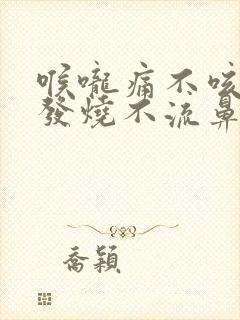 喉嚨痛不咳
發燒不流鼻
喬穎